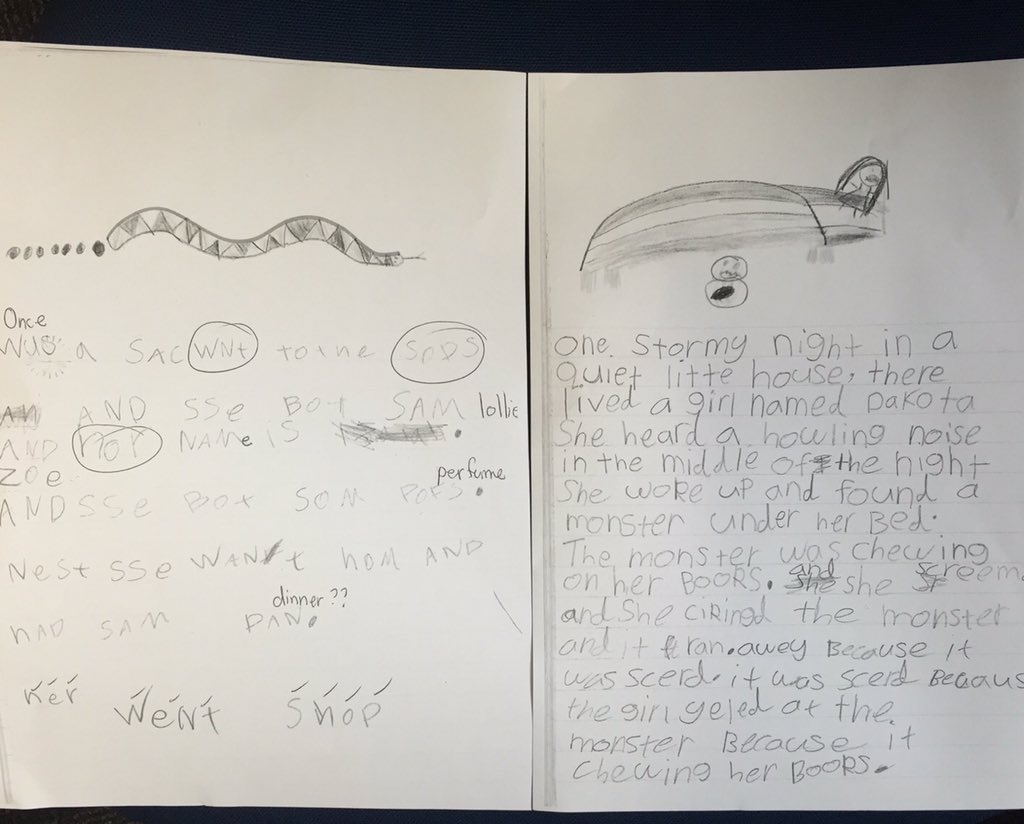 Once
WUS a SAC WNt to the SODS
AND SSe BOt SAM lollie
AND HOr NAMe iS
ZOe.
perfume
AND SSe BOt SOM POFS.
NeSt SSe WANt hOM AND
dinner??
HAD SAM DAN.
her WeNt ShOP
One Stormy night in a
Quiet litte house, there
lived a girl named Dakota
She heard a howling noise
in the middle of the night
She woke up and found a
monster under her Bed.
The monster was chewing
on her BOORS. and she screem
and She ciringd the monster
and it ran.awey Because it
was scerd. it was scerd Becaus
the girl yeled at the
monster Because it
chewing her BOORS.